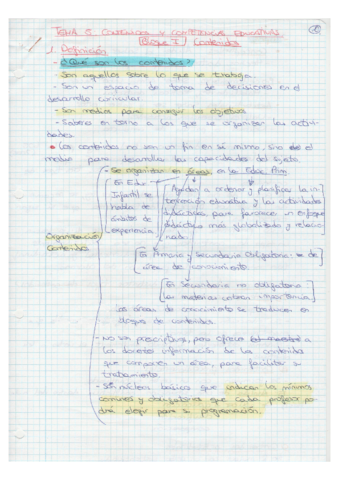 TEMA 5. CONTENIDOS Y COMPETENCIAS EDUCATIVAS
(Bloque I) Contenidos
1. Definición
- ¿Qué son los contenidos?
- Son aquellos sobre lo que se trabaja.
- Son un espacio de toma de decisiones en el
desarrollo curricular
- Son medios para conseguir los objetivos
- Saberes en torno a los que se organizan las activi-
dades.
Los contenidos no son un fin en sí mismo, sino el
medio para desarrollar las capacidades del sujeto.
Organización
Contenidos
- Se organizan en áreas en la Educ. Prim
En Educ
Infantil se
habla de
ámbitos de
experiencia
Ayudan a ordenar y planificar la in-
tervención educativa y las actividades
didácticas para favorecer un enfoque
didáctico más globalizado y relacio
nado.
En Primaria y Secundaria Obligatoria se de
áreas de conocimiento.
En Secundaria no obligatoria
las materias cobran importancia
Las áreas de conocimiento se traducen en
bloques de contenidos.
- No son prescriptivos, pero ofrecen
los docentes información de los contenidos
que componen un área, para facilitar su
tratamiento.
- Son núcleos básicos que indican los mínimos
comunes y obligatorios que cada profesor po
drá elegir para su programación.